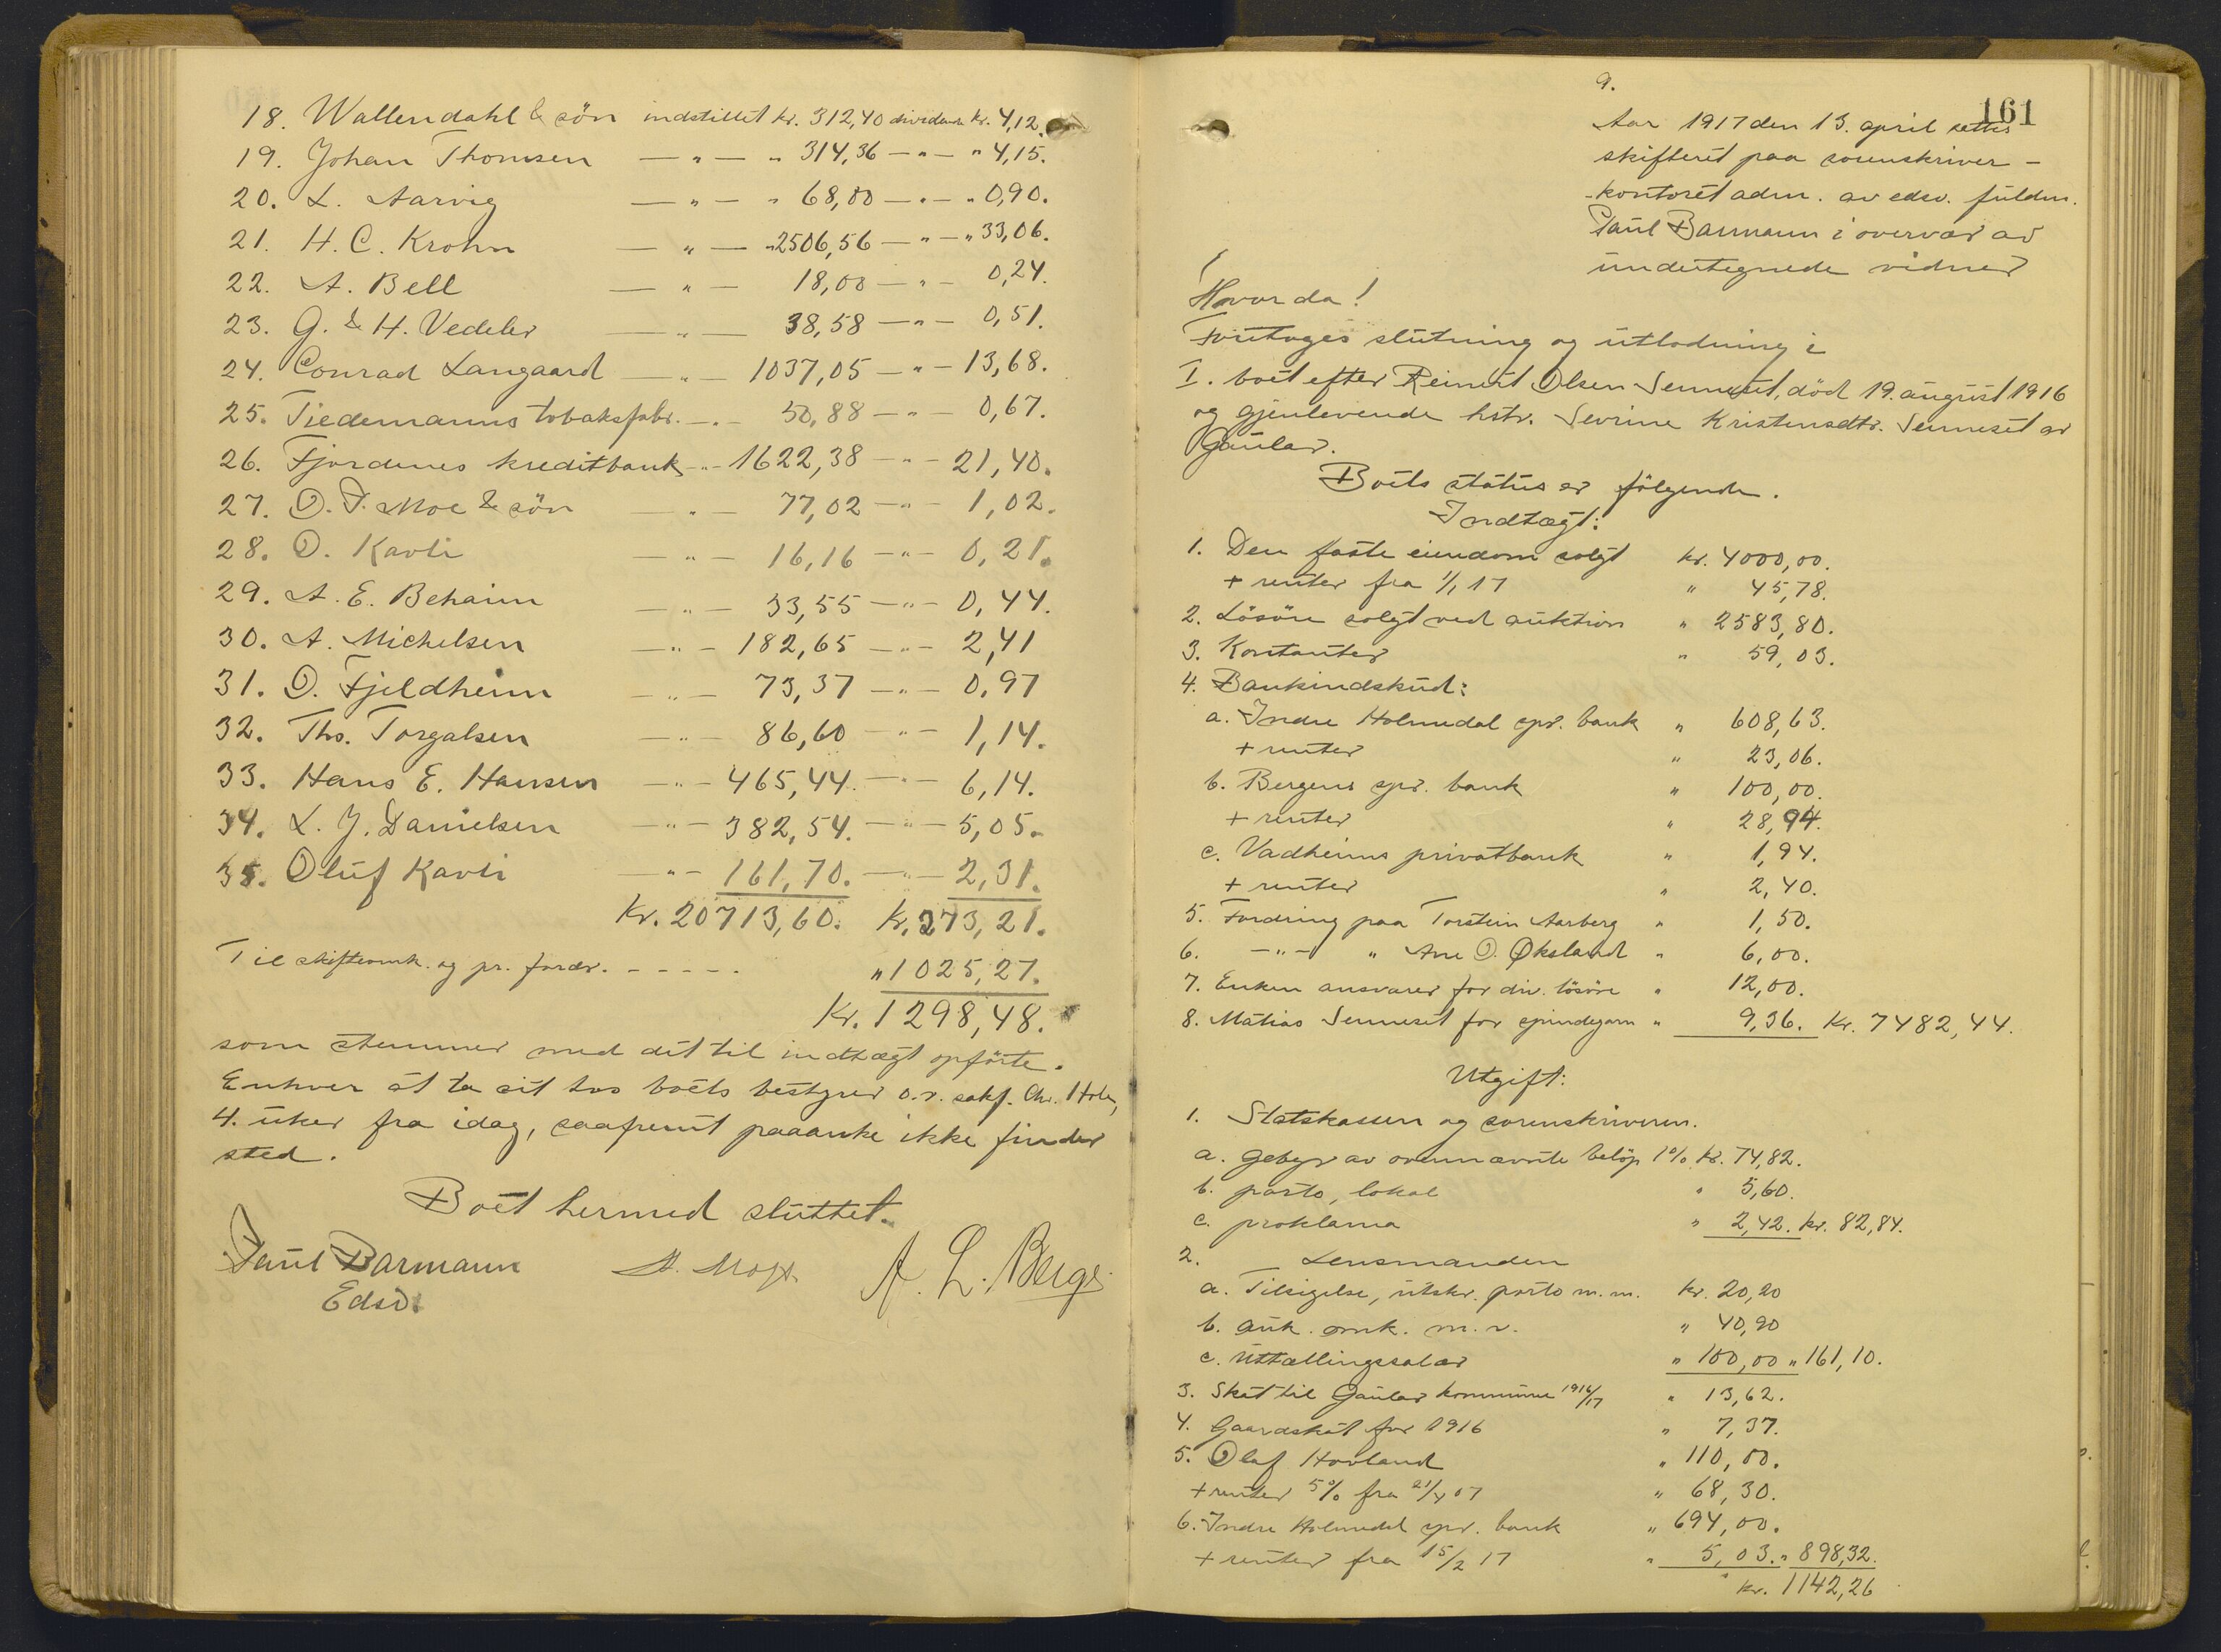 18. Wallendahl & sön indstillet kr. 312,40 dividende kr. 4,12.
19. Johan Thomsen — " — " 314,36 — " — " 4,15.
20. L. Aarvig — " — " 68,00 — " — " 0,90.
21. H. C. Krohn — " — " 2506,56 — " — " 33,06.
22. A. Bell — " — 18,00 — " — 0,24.
23. G. & H. Vedeler — " — 38,58 — " — 0,51.
24. Conrad Langaard — " — 1037,05 — " — 13,68.
25. Tiedemanns tobaksfabr. — " — 50,88 — " — 0,67.
26. Fjordenes kreditbank — " — 1622,38 — " — 21,40.
27. O. F. Moe & sön — " — 77,02 — " — 1,02.
28. O. Kavli — " — 16,16 — " — 0,21.
29. A. E. Behaim — " — 33,55 — " — 0,44.
30. A. Michelsen — " — 182,65 — " — 2,41
31. O. Fjeldheim — " — 73,37 — " — 0,97
32. Ths. Torgalsen — " — 86,60 — " — 1,14.
33. Hans E. Hansen — " — 465,44. — " — 6,14.
34. L. J. Danielsen — " — 382,54. — " — 5,05.
35. Oluf Kavli — " — 161,70. — " — 2,31.
Kr. 20713,60. Kr. 273,21.
Til skifteomk. og pr. fordr. - - - - - " 1025,27.
Kr. 1298,48.
som stemmer med det til indtægt opförte.
Enhver at ta sit hos boets bestyrer o.r. sakf. Chr.
4. uker fra idag, saafremt paaanke ikke finder
sted.
Boet hermed sluttet.
Paul Barmann
Edsv.
A. L. Berge
161
9.
Aar 1917 den 13. april settes
skifteret paa sorenskriver -
- kontoret adm. av edsv. fuldm.
Paul Barmann i overvær av
undertegnede vidner
Hvorda!
Foretoges slutning og utlodning i
I. boet efter Reinert Olsen Senneset, död 19. august 1916
og gjenlevende hstr. Sevrine Kristensdtr. Senneset av
Gaular.
Boets status er fölgende.
Indtægt:
1. Den faste eiendom solgt kr. 4000,00.
+ renter fra 1/1 17 " 45,78.
2. Lösöre solgt ved auktion " 2583,80.
3. Kontanter " 59,03.
4. Bankindskud:
a. Indre Holmedal spr. bank " 608,63.
+ renter " 23,06.
b. Bergens spr. bank " 100,00.
+ renter " 28,94.
c. Vadheims privatbank " 1,94.
+ renter " 2,40.
5. Fordring paa Torstein Aarberg " 1,50.
6. — " — " Ane O. Øksland " 6,00.
7. Enken ansvarer for div. lösöre " 12,00.
8. Matias Senneset for spindegarn " 9,36. Kr. 7482,44.
Utgift:
1. Statskassen og sorenskriveren.
a. gebyr av ovennævnte belöp 1% kr. 74,82.
b. porto, lokal " 5,60.
c. proklama " 2,42. kr. 82,84.
2. Lensmanden
a. Tilsigelse, utskr. porto m.m. kr. 20,20
b. auk. omk. m.v. " 40,90
c. Utfællingssalær " 100,00 " 161,10.
3. Skat til Gaular kommune 1916/17 " 13,62.
4. Gaardskat for 1916 " 7,37.
5. Olaf Hovland " 110,00.
+ renter 5% fra 21/4 07 " 68,30.
6. Indre Holmedal spr. bank " 694,00.
+ renter fra 15/2 17 " 5,03. " 898,32.
kr. 1142,26